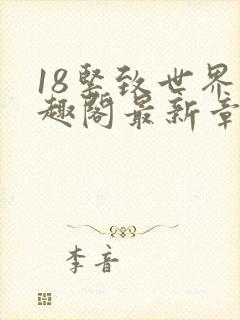 18坚致世界
趣阁最新章
李音